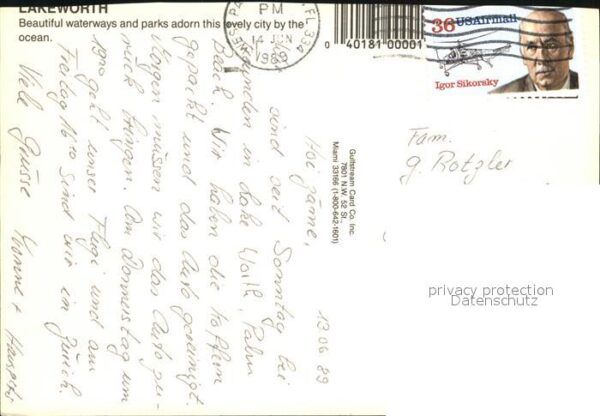 LAKEWORTH
Beautiful waterways and parks adorn this lovely city by the
ocean.
PM
14 JUN
1989
FL 334
0 40181 00001
36 USAirmail
Igor Sikorsky
Gulfstream Card Co. Inc.
7801 N.W. 52 St.,
Miami 33166 (1-800-642-1601)
Fam.
G. Rotzler
13 06 89
Hoi zäme,
sind seit Sonntag bei
Freunden in Lake Worth, Palm
Beach. Wir haben die Koffern
gepackt und das Auto gereinigt.
Morgen müssen wir das Auto zu-
rück bringen. Am Donnerstag um
geht unser Flug und am
Freitag sind wir in Zürich.
Viele Grüsse Yvonne + Hanspeter
privacy protection
Datenschutz